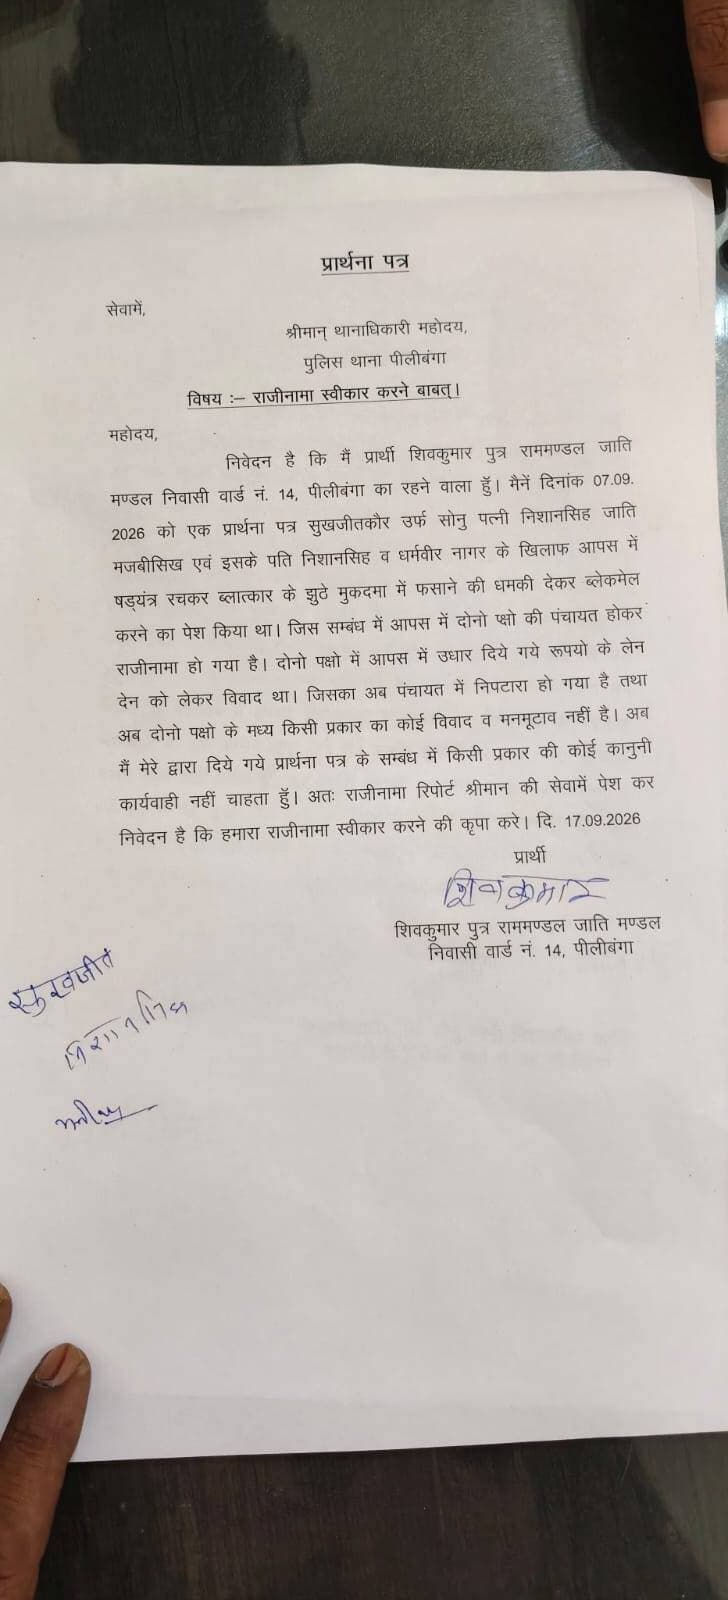 प्रार्थना पत्र
सेवामें,
श्रीमान् थानाधिकारी महोदय,
पुलिस थाना पीलीबंगा
विषय :– राजीनामा स्वीकार करने बाबत्।
महोदय,
निवेदन है कि मैं प्रार्थी शिवकुमार पुत्र राममण्डल जाति
मण्डल निवासी वार्ड नं. 14, पीलीबंगा का रहने वाला हूॅं। मैनें दिनांक 07.09.
2026 को एक प्रार्थना पत्र सुखजीतकौर उर्फ सोनु पत्नी निशानसिह जाति
मजबीसिख एवं इसके पति निशानसिह व धर्मवीर नागर के खिलाफ आपस में
षड्यंत्र रचकर ब्लात्कार के झुठे मुकदमा में फसाने की धमकी देकर ब्लेकमेल
करने का पेश किया था। जिस सम्बंध में आपस में दोनो पक्षो की पंचायत होकर
राजीनामा हो गया है। दोनो पक्षो में आपस में उधार दिये गये रूपयो के लेन
देन को लेकर विवाद था। जिसका अब पंचायत में निपटारा हो गया है तथा
अब दोनो पक्षो के मध्य किसी प्रकार का कोई विवाद व मनमूटाव नहीं है। अब
मैं मेरे द्वारा दिये गये प्रार्थना पत्र के सम्बंध में किसी प्रकार की कोई कानुनी
कार्यवाही नहीं चाहता हूॅं। अतः राजीनामा रिपोर्ट श्रीमान की सेवामें पेश कर
निवेदन है कि हमारा राजीनामा स्वीकार करने की कृपा करे। दि. 17.09.2026
प्रार्थी
शिवकुमार
शिवकुमार पुत्र राममण्डल जाति मण्डल
निवासी वार्ड नं. 14, पीलीबंगा
सुखजीत